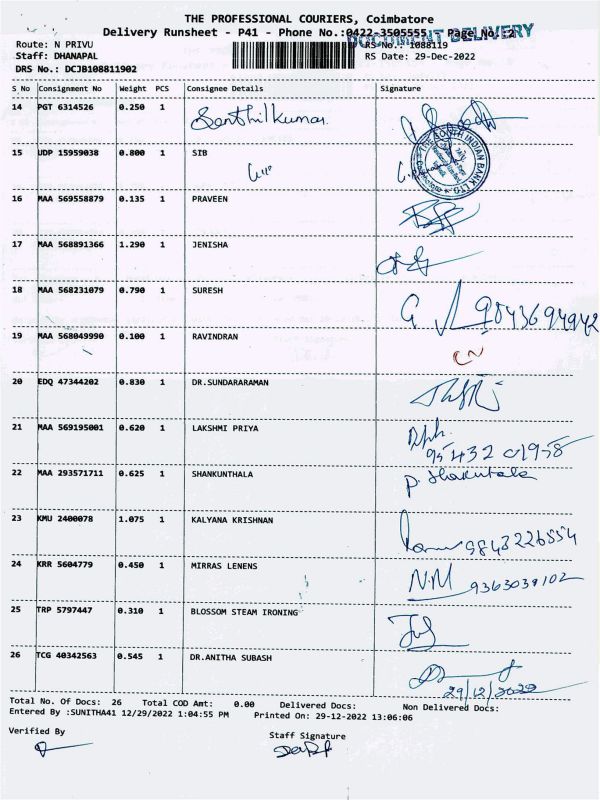 THE PROFESSIONAL COURIERS, Coimbatore
Delivery Runsheet - P41 - Phone No.:0422-3505555 Page No.:2
DOCUMENT DELIVERY
Route: N PRIVU RS No.: 1088119
Staff: DHANAPAL RS Date: 29-Dec-2022
DRS No.: DCJB108811902
S No Consignment No Weight PCS Consignee Details Signature
14 PGT 6314526 0.250 1 Senthilkumar
15 UDP 15959038 0.800 1 SIB
THE SOUTH INDIAN BANK LTD.
16 MAA 569558879 0.135 1 PRAVEEN
17 MAA 568891366 1.290 1 JENISHA
18 MAA 568231079 0.790 1 SURESH 9843694942
19 MAA 568049990 0.100 1 RAVINDRAN
20 EDQ 47344202 0.830 1 DR.SUNDARARAMAN
21 MAA 569195001 0.620 1 LAKSHMI PRIYA
95432 01958
22 MAA 293571711 0.625 1 SHANKUNTHALA P. Shakuntala
23 KMU 2400078 1.075 1 KALYANA KRISHNAN 9843226554
24 KRR 5604779 0.450 1 MIRRAS LENENS N.M 9363039102
25 TRP 5797447 0.310 1 BLOSSOM STEAM IRONING
26 TCG 40342563 0.545 1 DR.ANITHA SUBASH
29/12/2022
Total No. Of Docs: 26 Total COD Amt: 0.00 Delivered Docs: Non Delivered Docs:
Entered By :SUNITHA41 12/29/2022 1:04:55 PM Printed On: 29-12-2022 13:06:06
Verified By Staff Signature